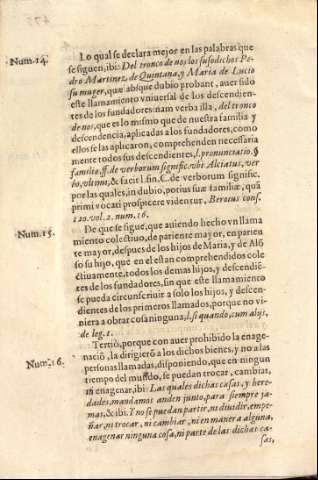 Num.14.
Lo qual se declara mejor en las palabras que
se siguen, ibi: Del tronco de nos los susodichos Pe-
dro Martinez, de Quintana, y Maria de Lucio
su muger, quæ absque dubio probant, auer sido
este llamamiento vniuersal de los descendien-
tes de los fundadores: nam verba illa, del tronco
de nos, que es lo mismo que de nuestra familia y
descendencia, aplicadas a los fundadores, como
ellos se las aplicaron, comprehenden necessaria
mente todos sus descendientes, l. pronunciatio. §
familiæ, ff. de verborum signific. vbi Alciatus, ver
bo, vltimo, & facit l. fin. C. de verborum signific.
por las quales, in dubio, potius suæ familiæ, quã
primi vocati prospicere videntur, Berous cons.
120. vol. 2. num. 16.
Num.15.
De que se sigue, que auiendo hecho vn llama
miento colectiuo, de pariente mayor, en parien
te mayor, despues de los hijos de Maria, y de Alõ
so su hijo, que en el estan comprehendidos cole
ctiuamente, todos los demas hijos, y descendiẽ-
tes de los fundadores, sin que este llamamiento
se pueda circunscriuir a solo los hijos, y descen-
dientes de los primeros llamados, porque no vi-
niera a obrar cosa ninguna, l. si quando, cum alijs,
de leg. 1.
Num.16.
Tertiò, porque con auer prohibido la enage-
naciõ, la dirigerõ a los dichos bienes, y no a las
personas llamadas, disponiendo, que en ningun
tiempo del mundo, se puedan trocar, cambias,
ni enagenar, ibi: Las quales dichas casas, y here-
dades, mandamos anden junto, para siempre ja-
mas, & ibi: Y no se puedan partir, ni diuidir, empe-
ñar, ni trocar, ni cambiar, ni en manera alguna,
enagenar ninguna cosa, ni parte de las dichas ca-
sas,